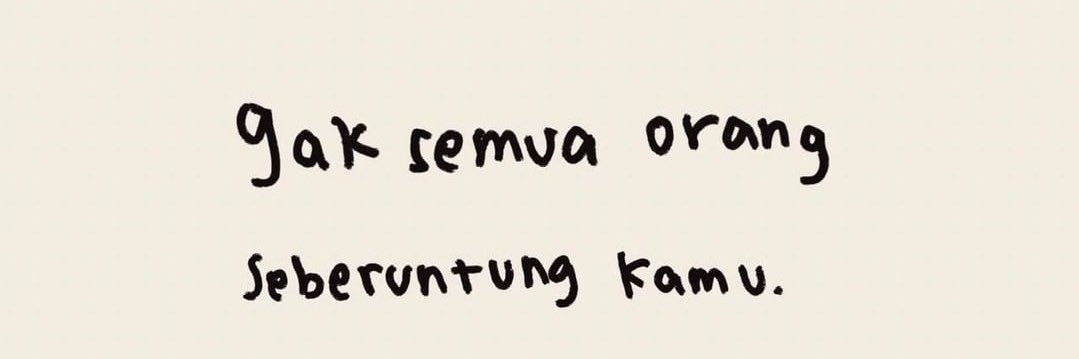 gak semua orang
seberuntung kamu.